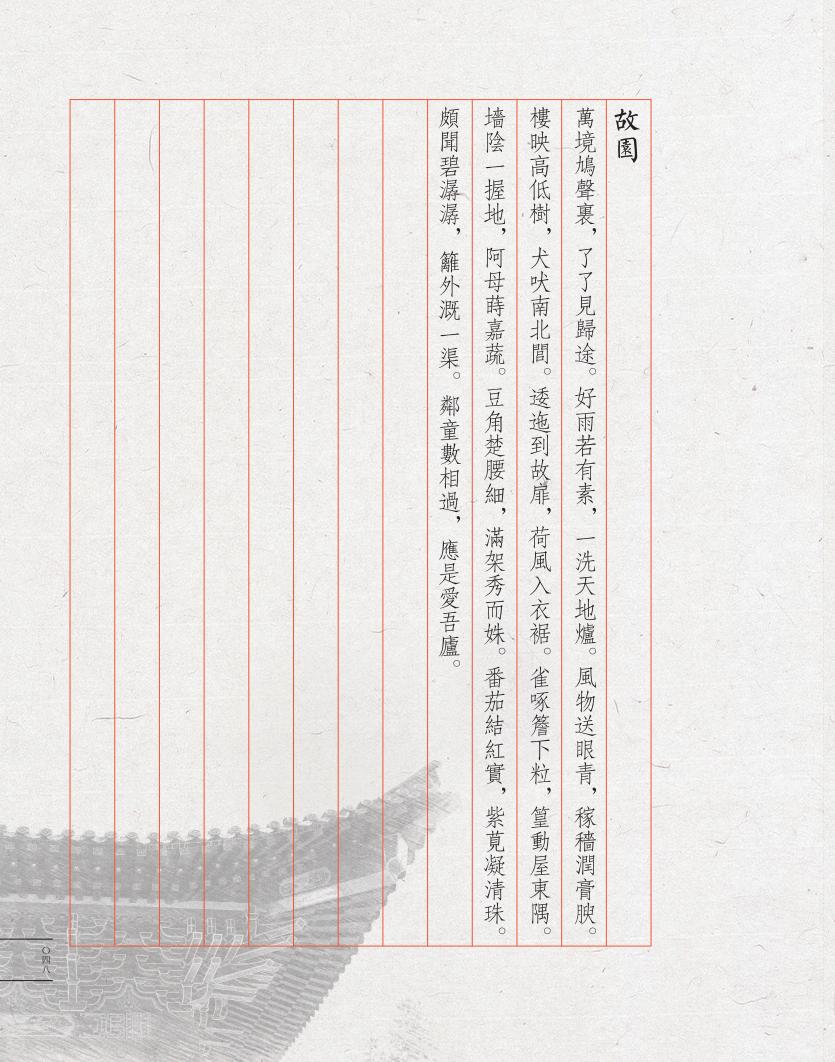 故園
萬境鳩聲裏，了了見歸途。好雨若有素，一洗天地爐。風物送眼青，稼穡潤膏腴。
樓映高低樹，犬吠南北閭。逶迤到故扉，荷風入衣裾。雀啄簷下粒，篁動屋東隅。
墻陰一握地，阿母蒔嘉蔬。豆角楚腰細，滿架秀而姝。番茄結紅實，紫莧凝清珠。
頗聞碧潺潺，籬外溉一渠。鄰童數相過，應是愛吾廬。
〇四八